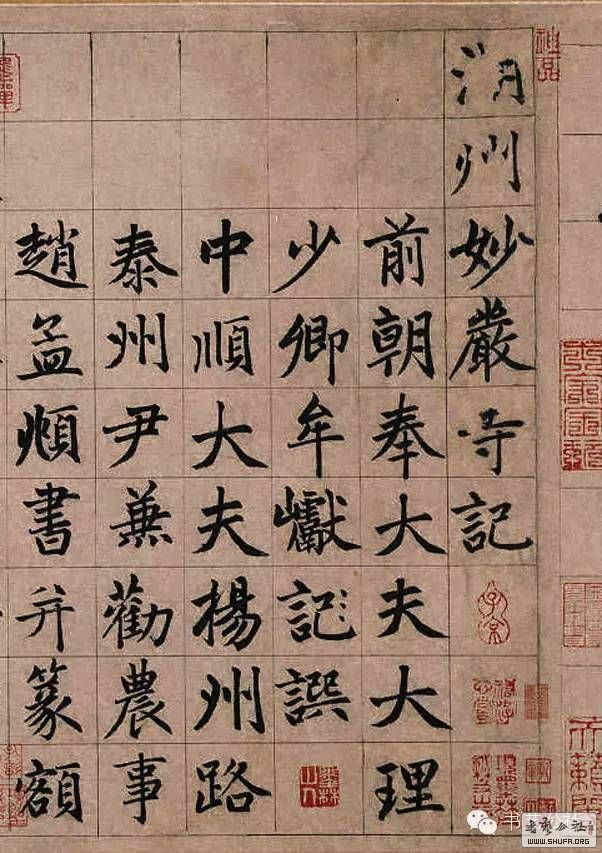 湖州妙嚴寺記
前朝奉大夫大理
少卿牟巘記譔
中順大夫揚州路
泰州尹兼勸農事
趙孟頫書并篆額
神品
书艺公社
WWW.SHUFA.ORG